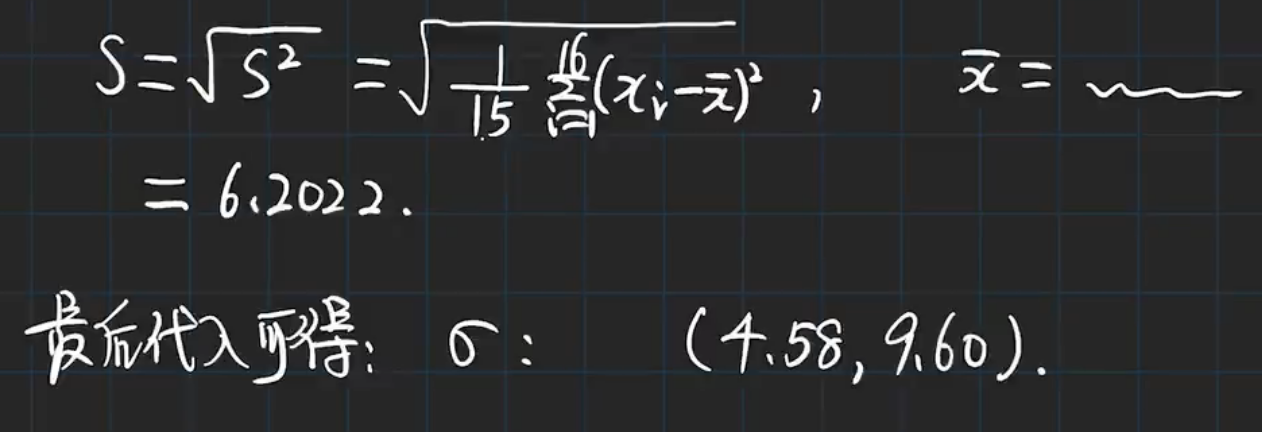 S=√S² = √(1/15 Σ_{i=1}^{16}(xᵢ-x̄)²), x̄ =
= 6.2022.
最后代入可得: σ: (4.58, 9.60).